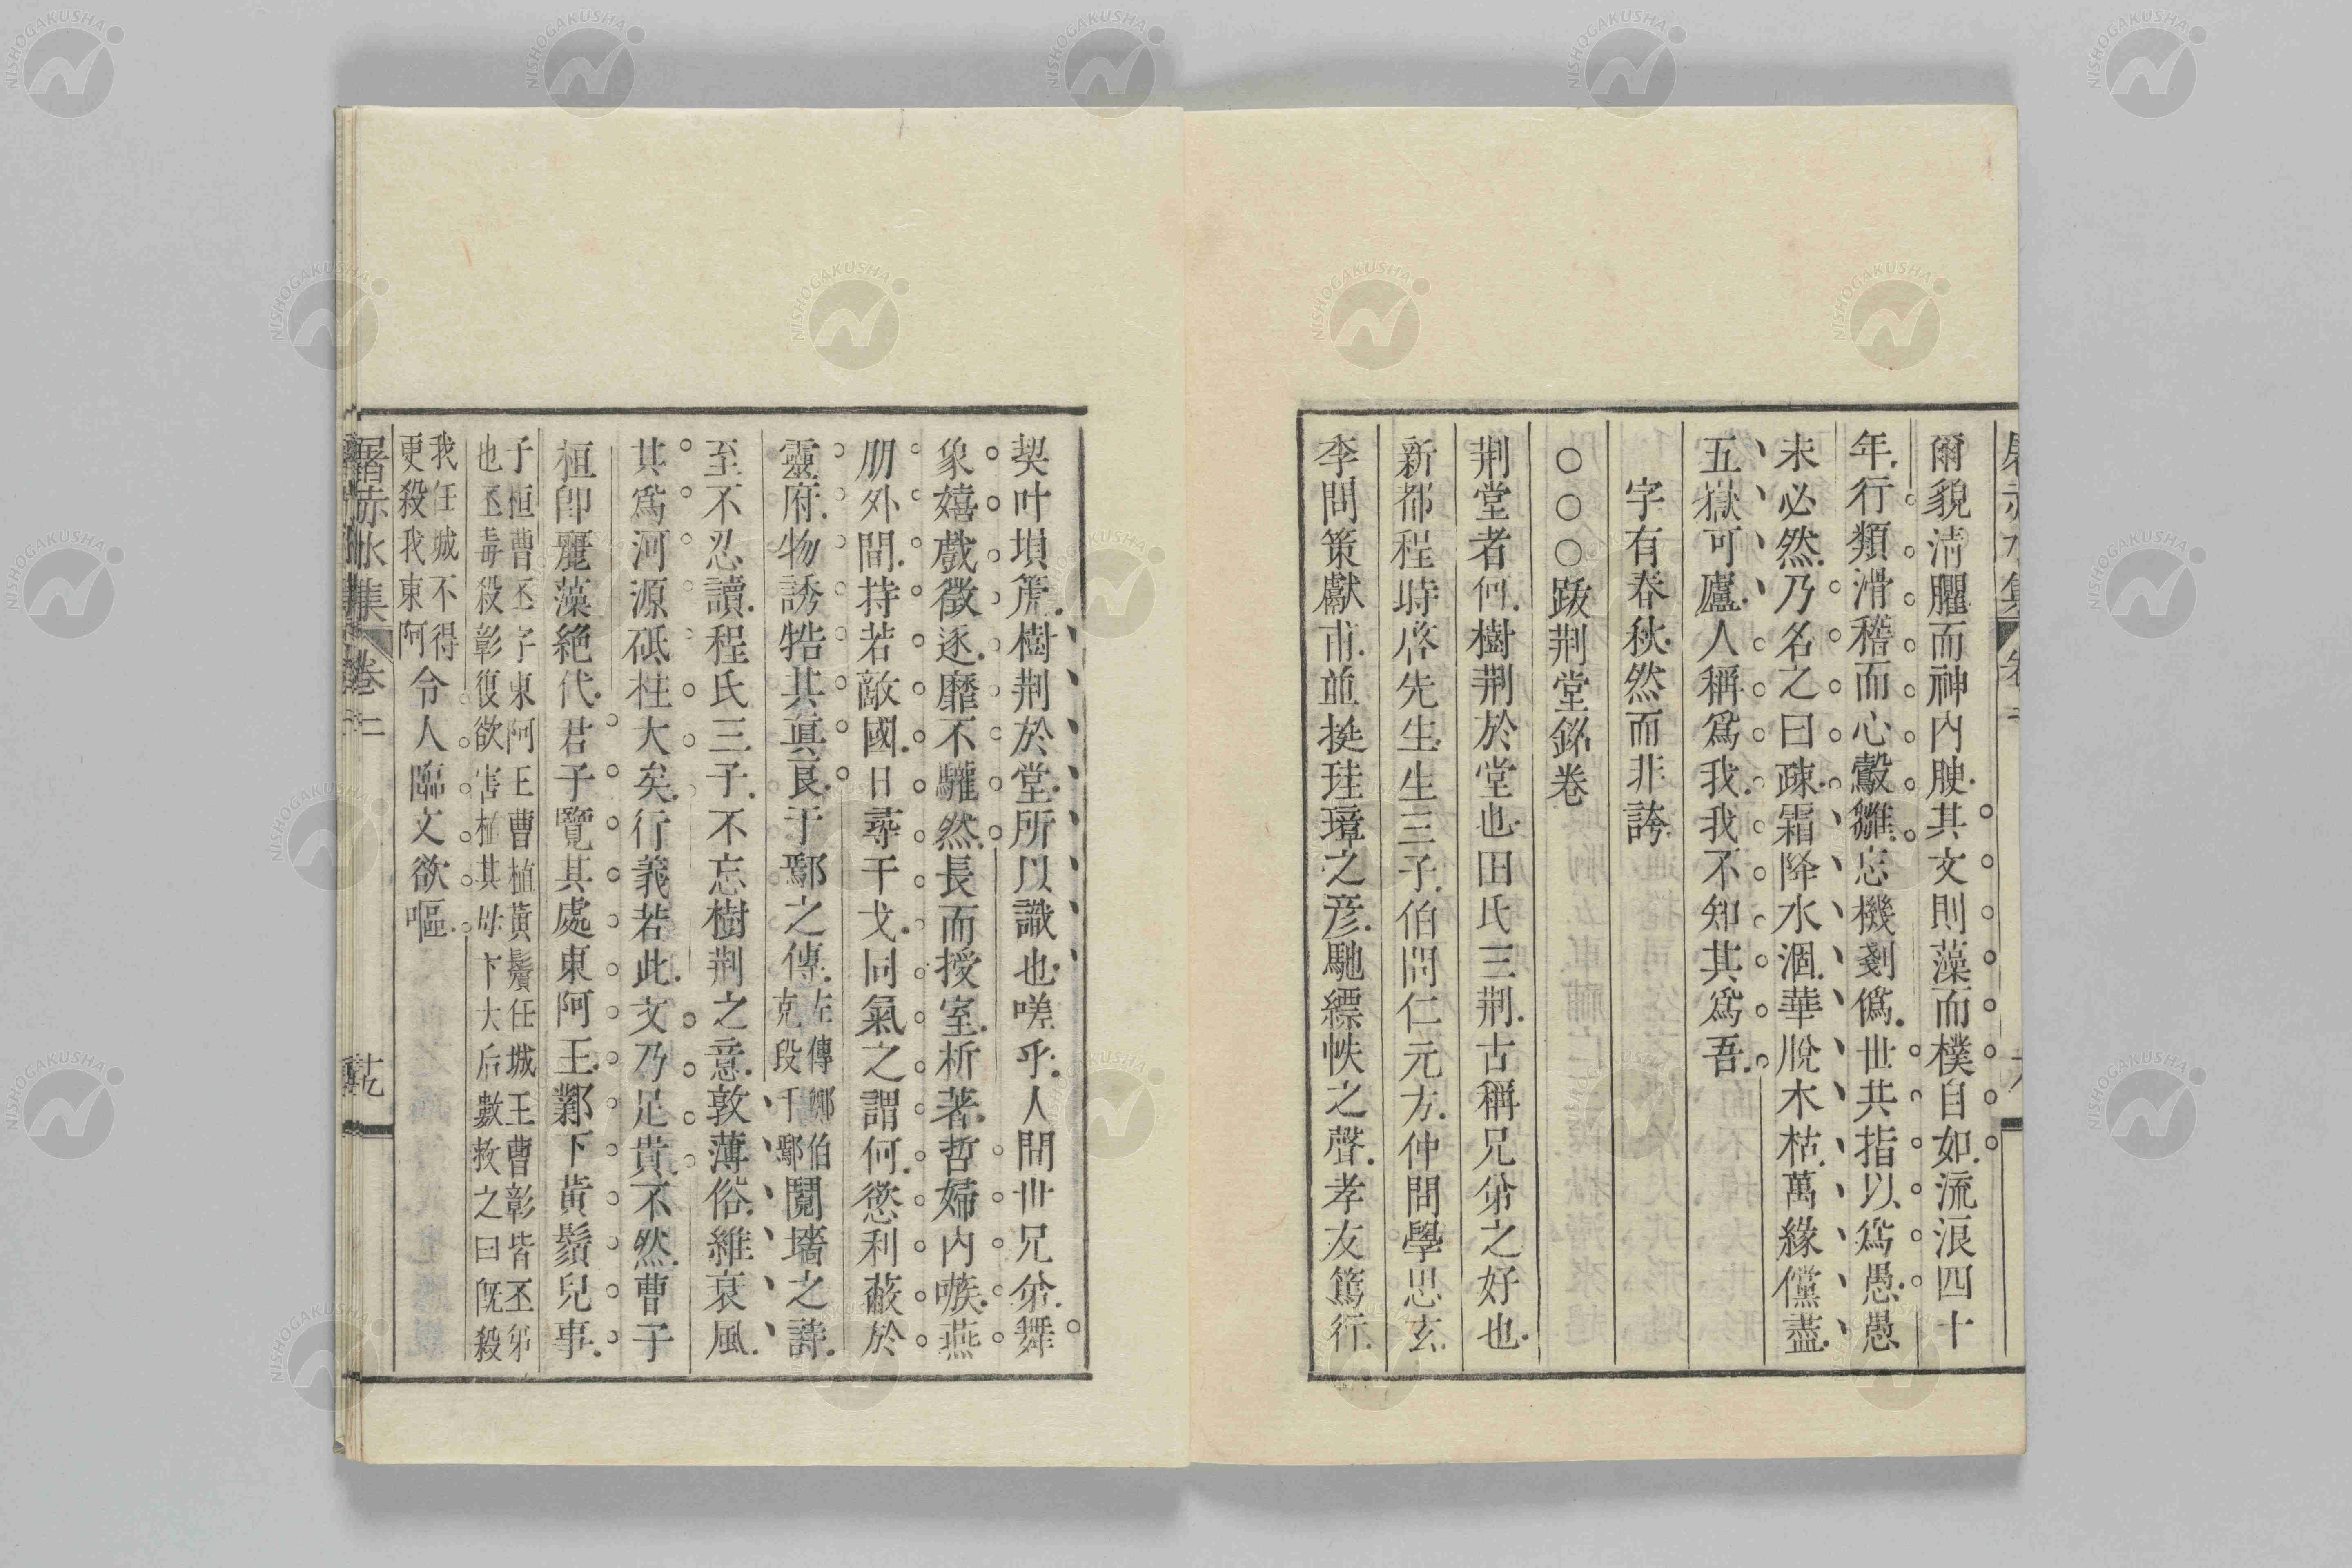 爾貌清臞而神内腴其文則藻而樸自如流浪四十
年行類滑稽而心鷇雛忘機剗僞世共指以爲愚愚
未必然乃名之曰疎霜降水涸華脫木枯萬緣儻盡
五嶽可廬人稱爲我我不知其爲吾
字有春秋然而非誇
○○○跋荆堂銘卷
荆堂者何樹荆於堂也田氏三荆古稱兄弟之好也
新都程時啓先生生三子伯問仁元方仲問學思玄
季問策獻甫並挺珪璋之彦馳縹帙之聲孝友篤行
契叶塤篪樹荆於堂所以識也嗟乎人間世兄弟舞
象嬉戲徵逐靡不驩然長而授室析著哲婦内嗾燕
朋外間持若敵國日尋干戈同氣之謂何慾利蔽於
靈府物誘牿其眞良于鄢之傳左傳鄭伯克段于鄢鬩墻之詩
至不忍讀程氏三子不忘樹荆之意敦薄俗維衰風
其爲河源砥柱大矣行義若此文乃足貴不然曹子
桓卽麗藻絕代君子覽其處東阿王鄴下黄鬚兒事
子桓曹丕字東阿王曹植黄鬚任城王曹彰皆丕弟
也丕毒殺彰復欲害植其母卞大后數救之曰既殺
我任城不得
更殺我東阿令人臨文欲嘔
屠赤水集 卷二
NISHOGAKUSHA